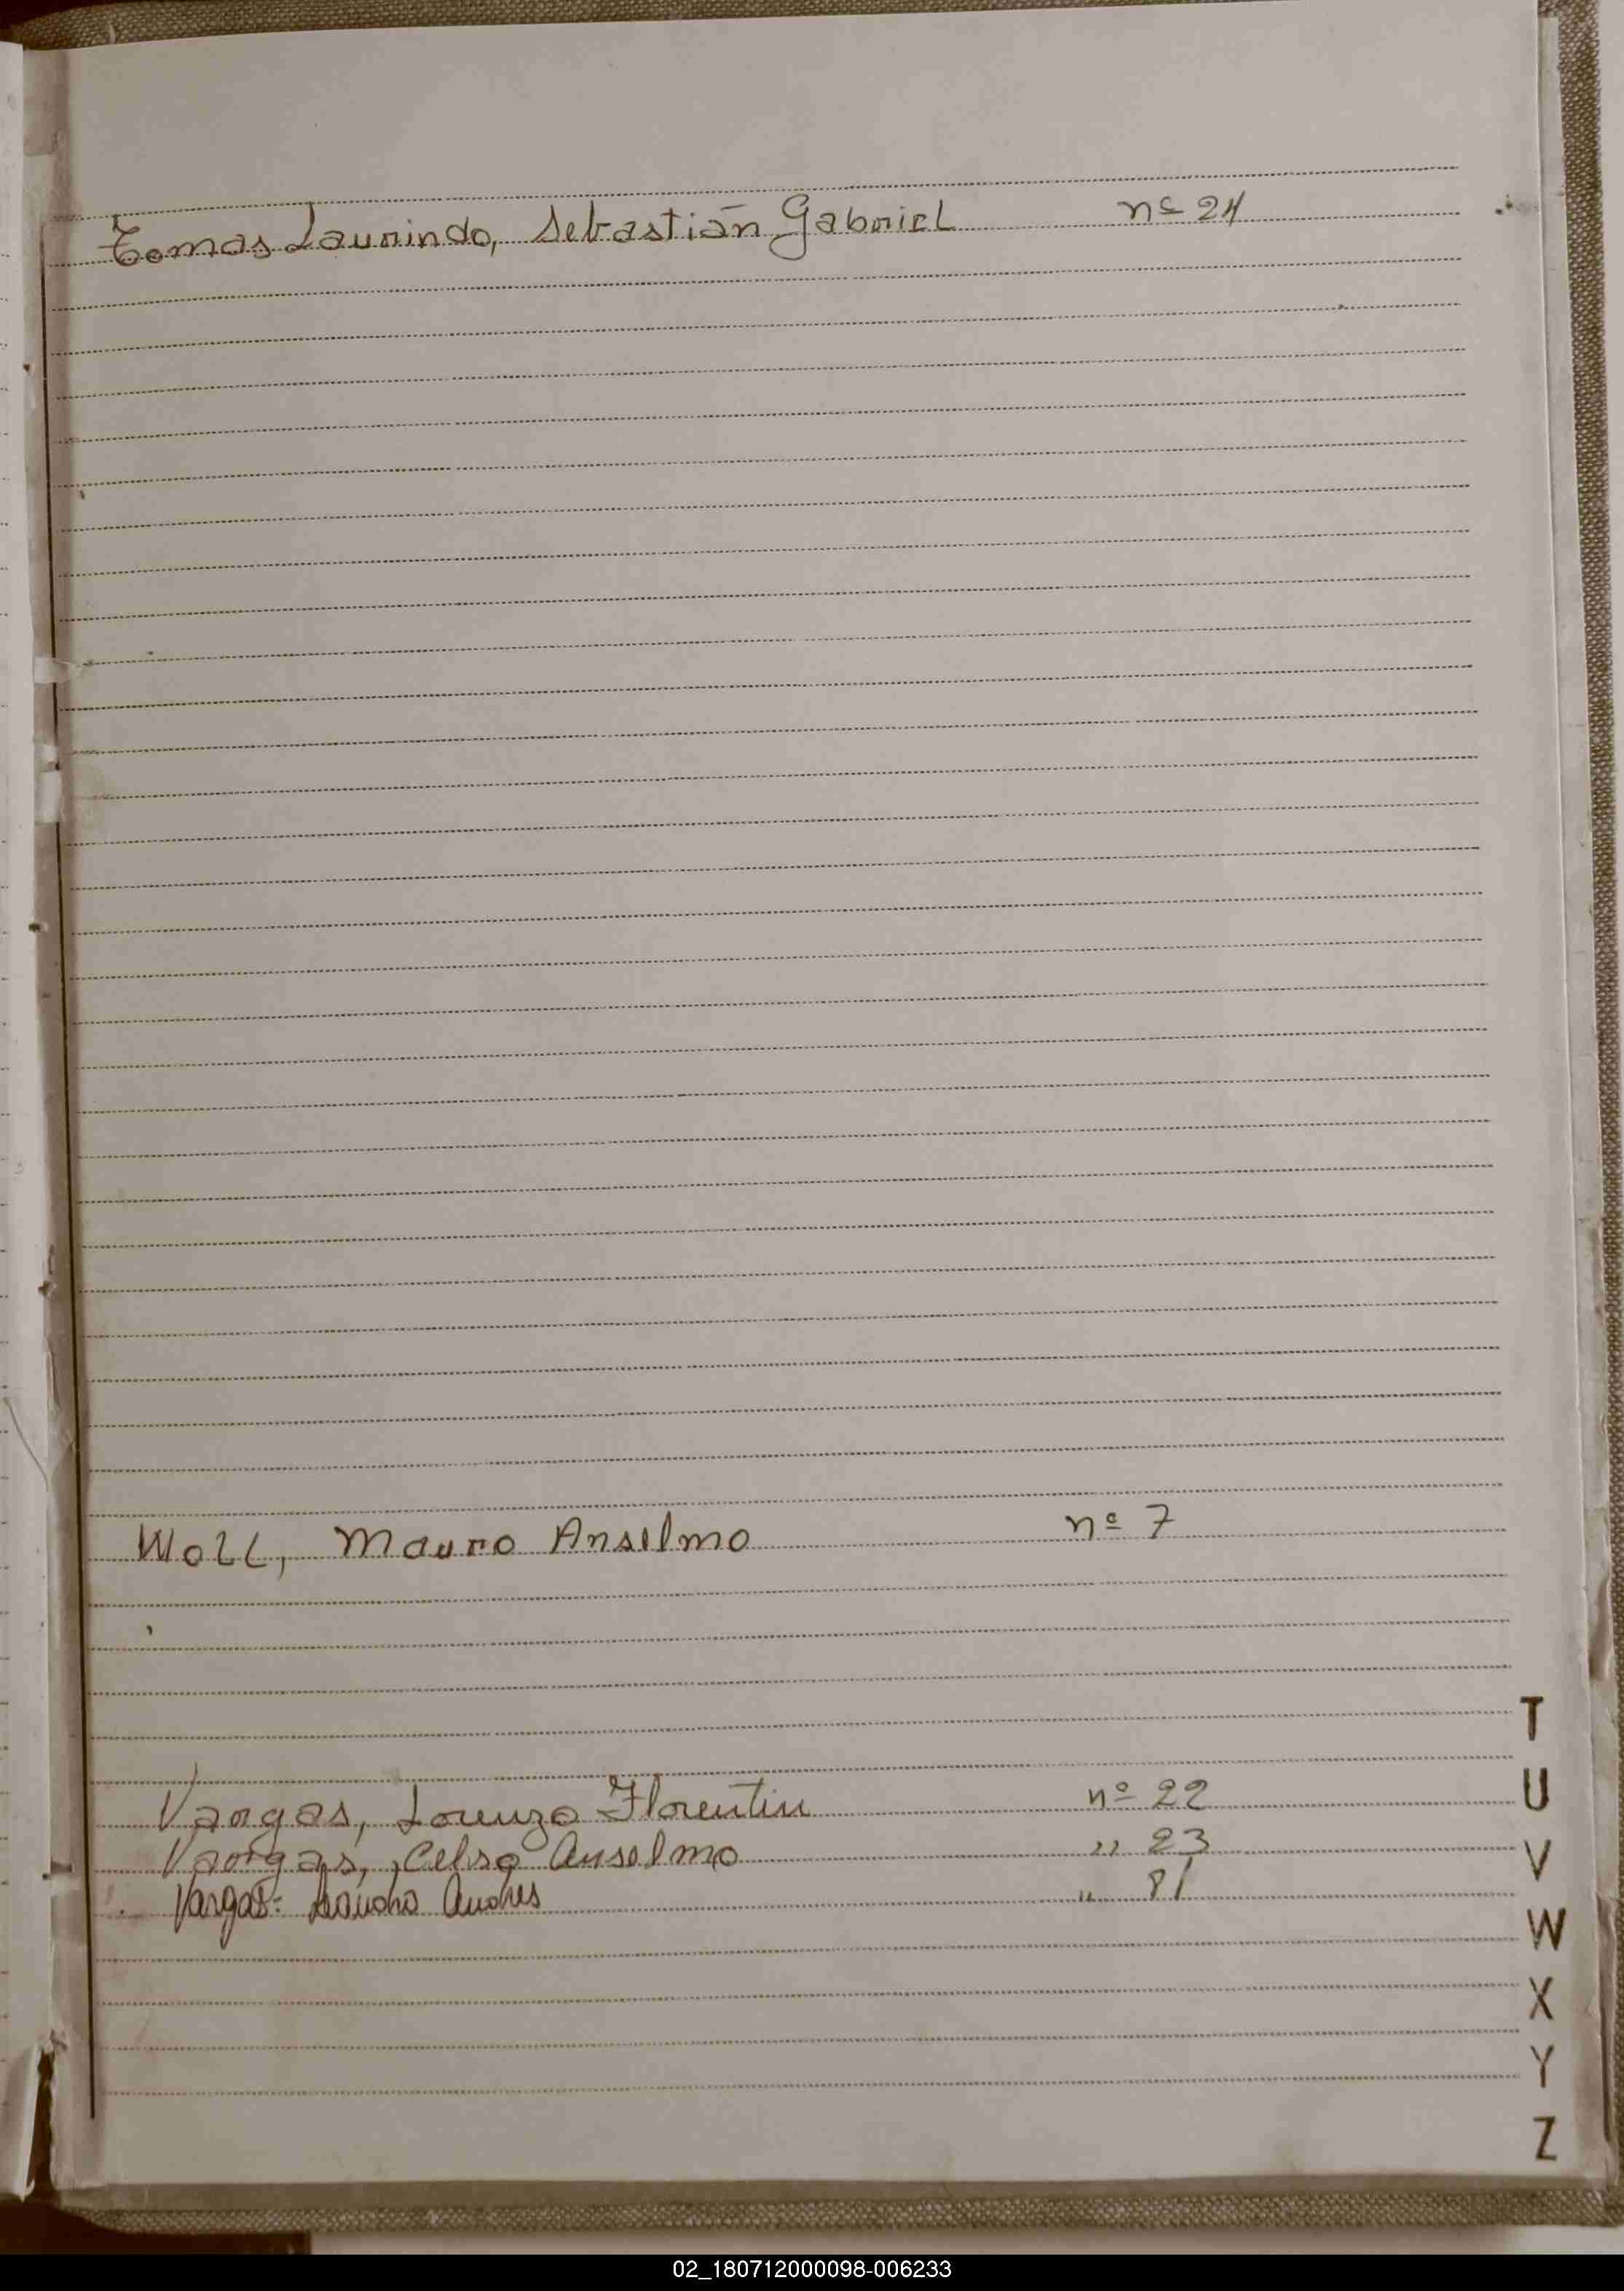 Tomas Laurindo, Sebastián Gabriel nº 24
Woll, Mauro Anselmo nº 7
Vargas, Lorenzo Florentin nº 22
Vargas, Celso Anselmo " 23
Vargas: Andres " 81
T
U
V
W
X
Y
Z
02_180712000098-006233